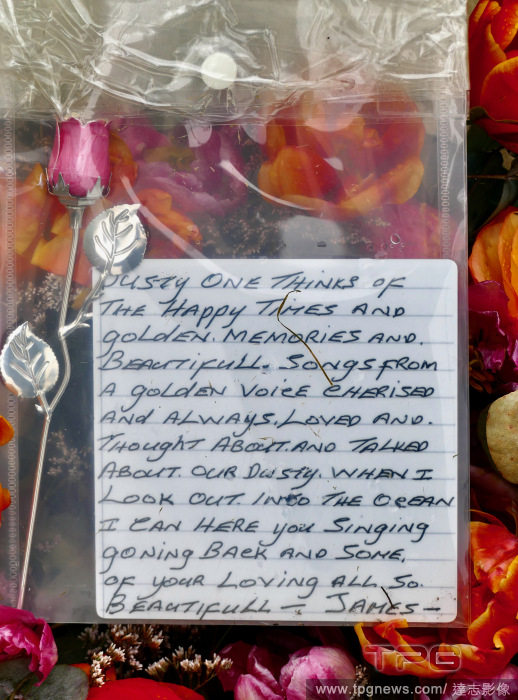 DUSTY ONE THINKS OF
THE HAPPY TIMES AND
gOLDEN. MEMORIES AND.
BEAUTIFULL. SONgS FROM
A gOLDEN VOICE CHERISED
AND ALWAYS. LOVED AND.
THOUgHT ABOUT. AND TALKED
ABOUT. OUR DUSTY. WHEN I
LOOK OUT. INTO THE OCEAN
I CAN HERE YOU SINgINg
gONINg BACK AND SOME,
OF YOUR LOVINg ALL, SO.
BEAUTIFULL — JAMES —
TPG
www.tpgnews.com/達志影像